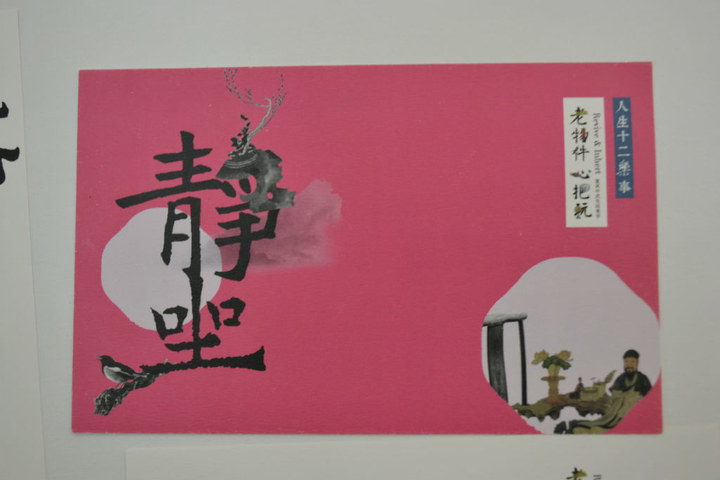 靜坐
人生十二樂事
Revive & Inherit
老物件 心把玩
老